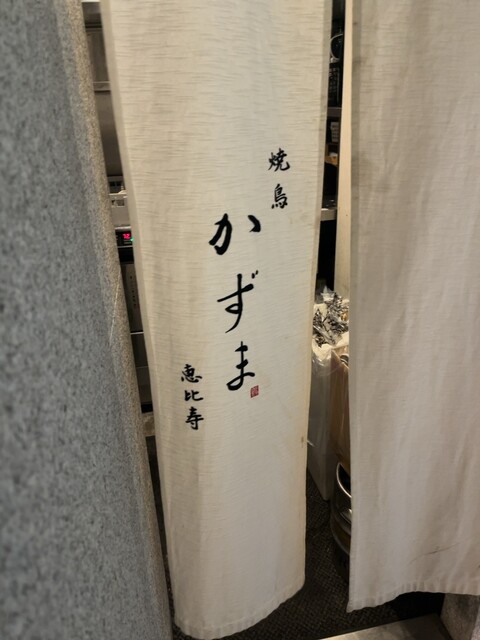 焼鳥
かずま
恵比寿